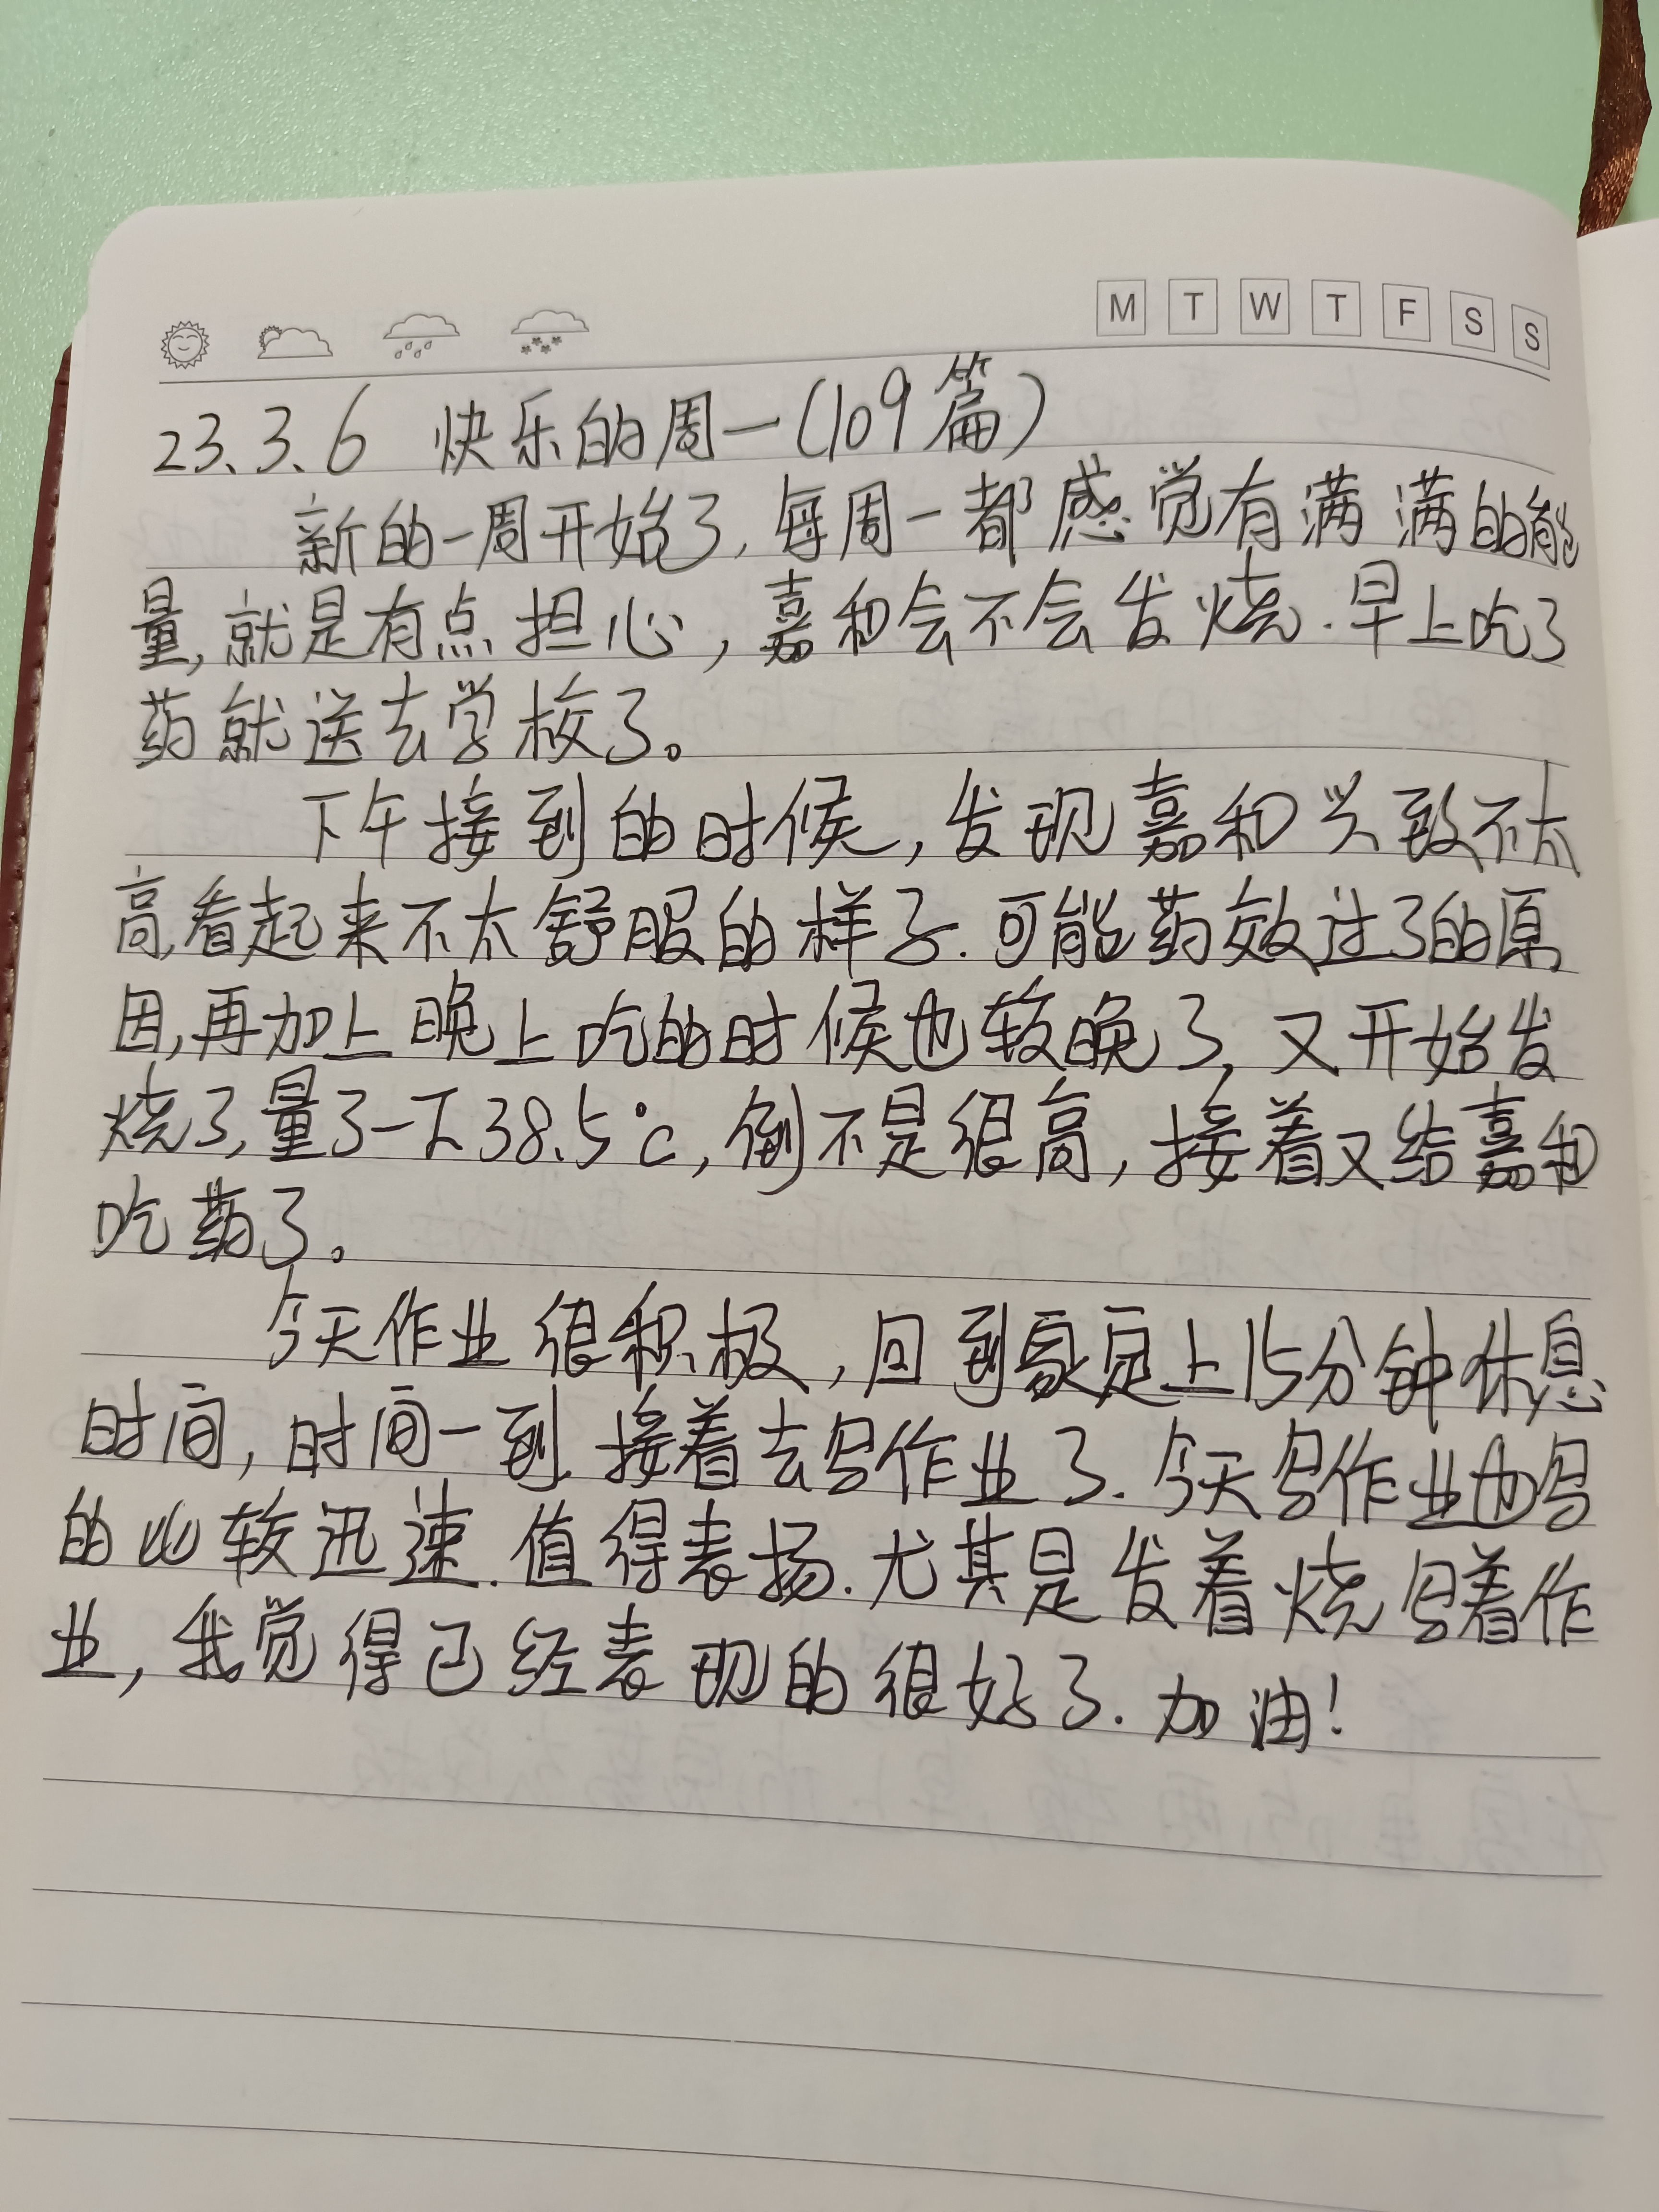 M T W T F S S
23.3.6 快乐的周一(109篇)
新的一周开始了,每周一都感觉有满满的能
量,就是有点担心,嘉和会不会发烧.早上吃了
药就送去学校了。
下午接到的时候,发现嘉和兴致不太
高,看起来不太舒服的样子.可能药效过了的原
因,再加上晚上吃的时候也较晚了,又开始发
烧了,量了一下38.5℃,倒不是很高,接着又给嘉和
吃药了。
今天作业很积极,回到家定上15分钟休息
时间,时间一到接着去写作业了.今天写作业也写
的比较迅速.值得表扬.尤其是发着烧写着作
业,我觉得已经表现的很好了.加油!